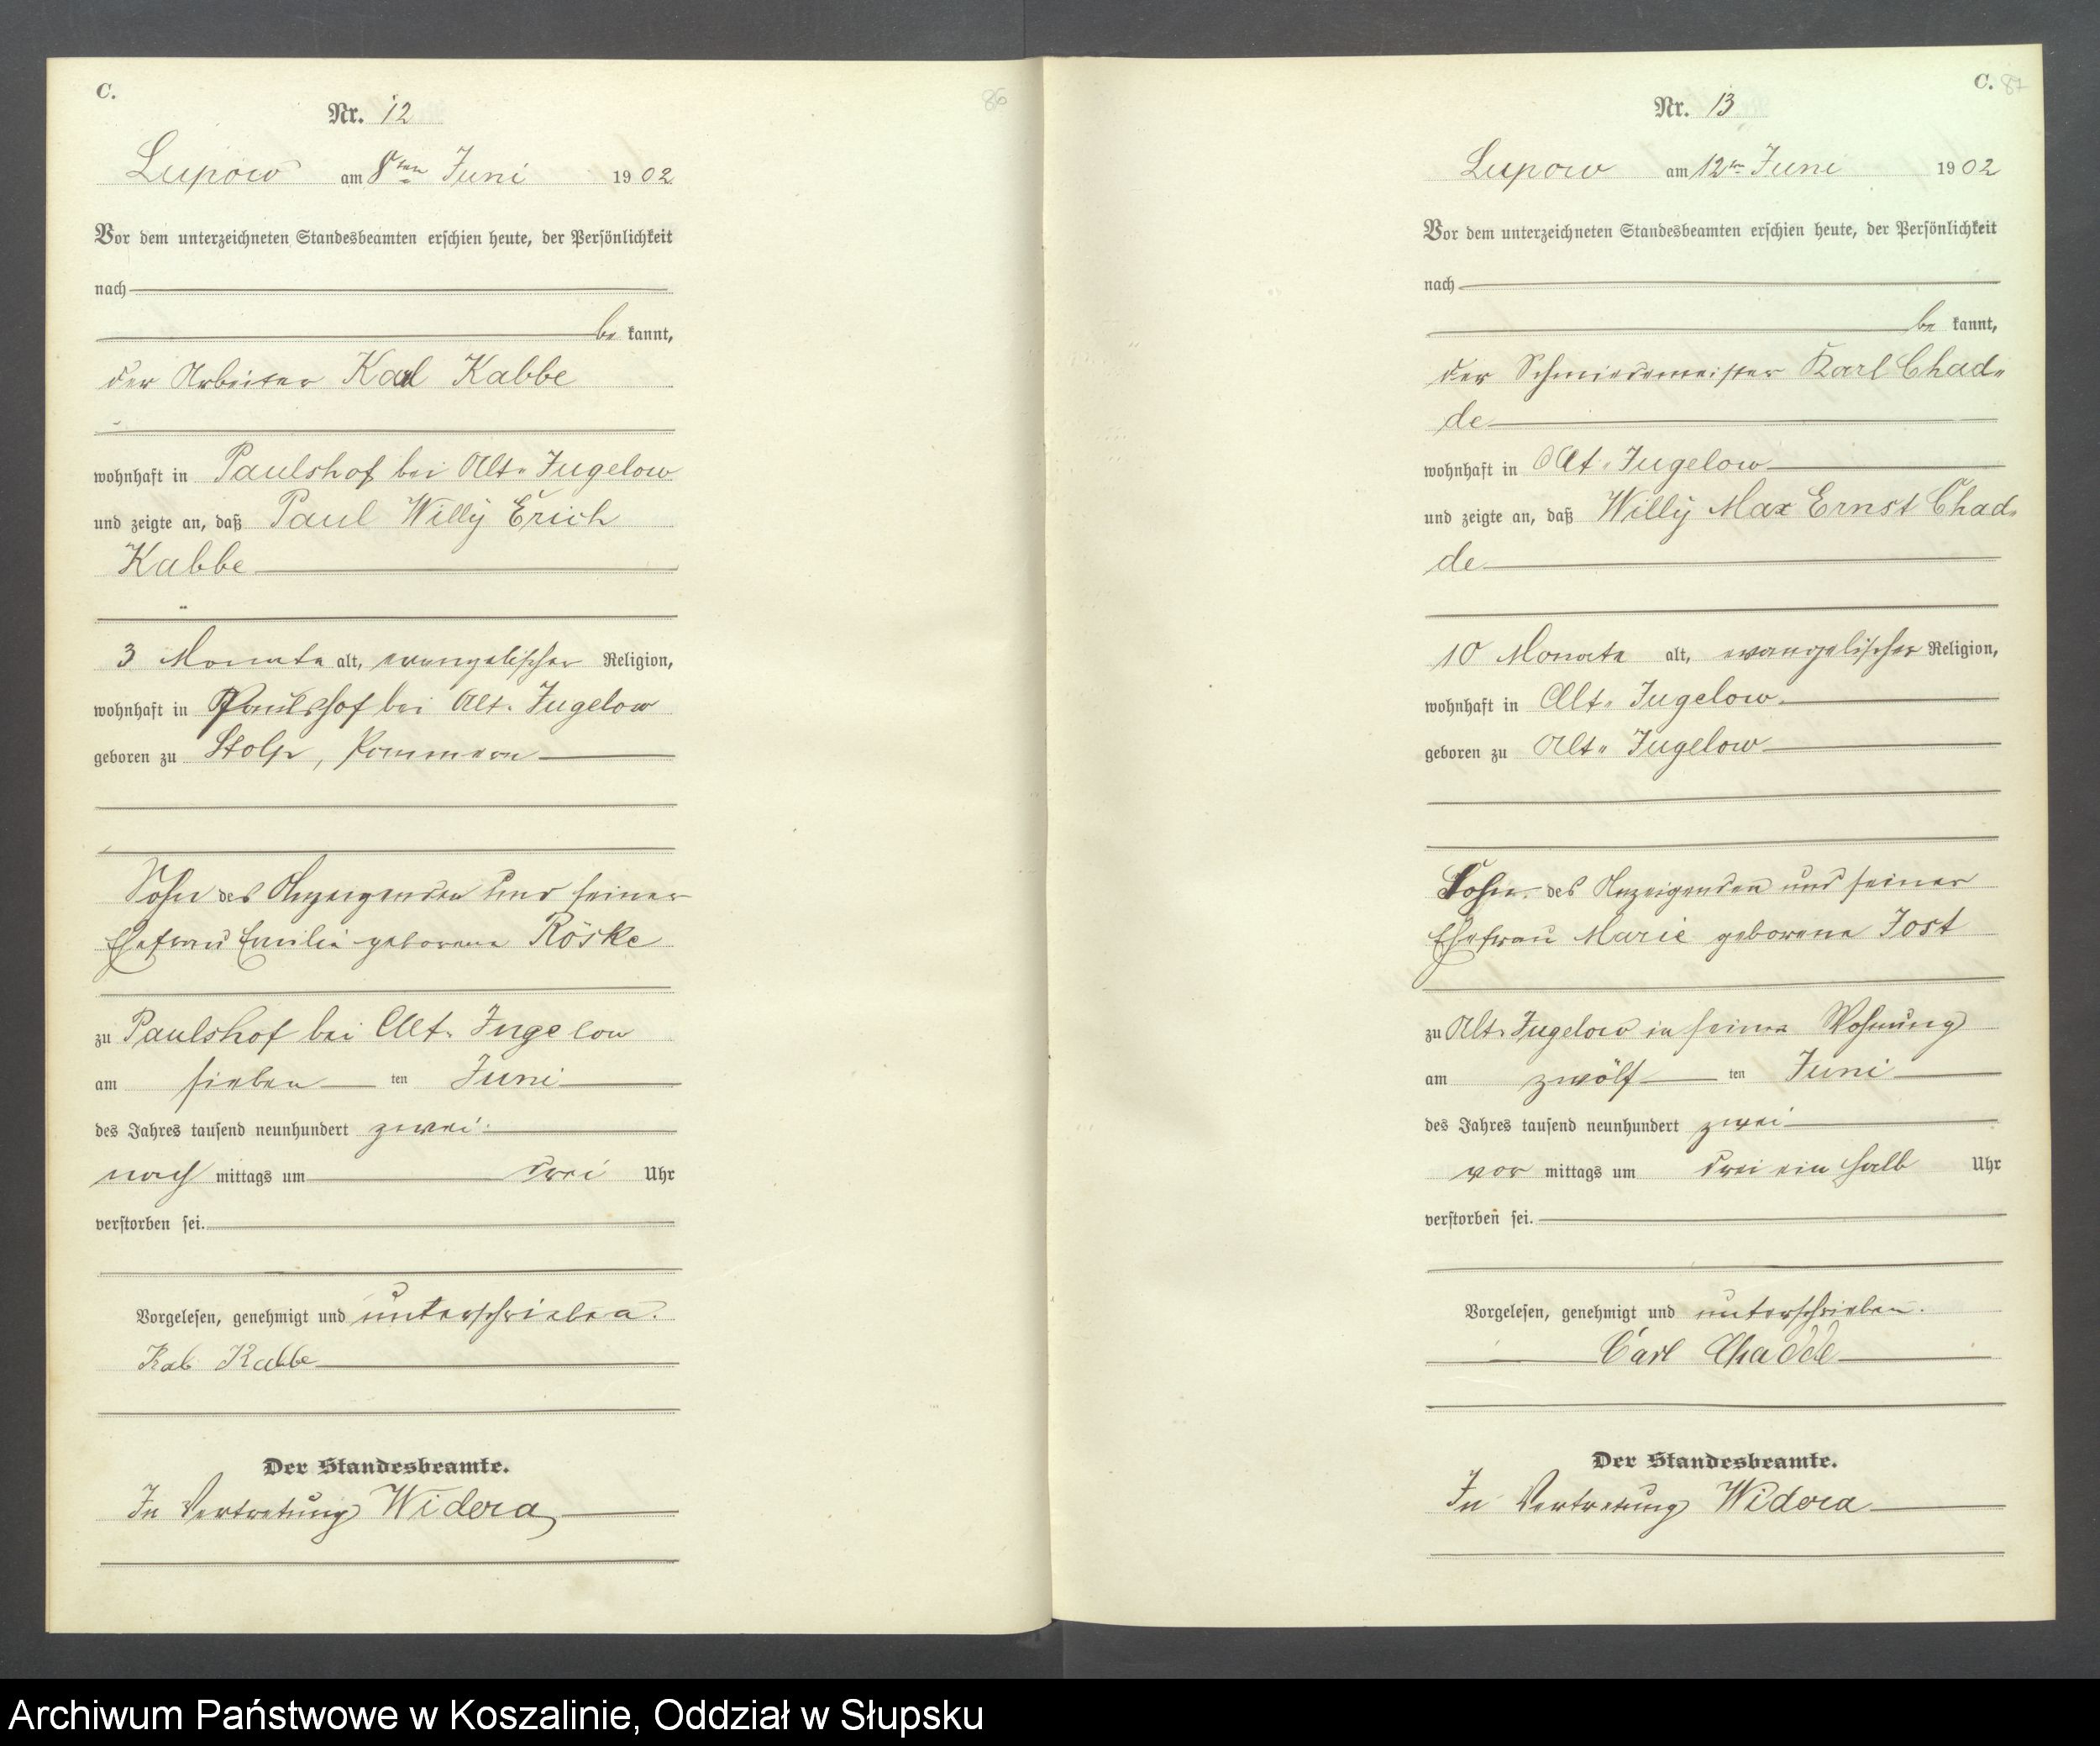 C.
86
Nr. 12
Lupow am 8ten Juni 1902
Vor dem unterzeichneten Standesbeamten erschien heute, der Persönlichkeit
nach
be kannt,
der Arbeiter Karl Kabbe
wohnhaft in Paulshof bei Alt-Jugelow
und zeigte an, daß Paul Willy Erich
Kabbe
3 Monate alt, evangelischer Religion,
wohnhaft in Paulshof bei Alt-Jugelow
geboren zu Stolp, Pommern
Sohn des Anzeigenden und seiner
Ehefrau Emilie geborene Röske
zu Paulshof bei Alt-Jugelow
am sieben ten Juni
des Jahres tausend neunhundert zwei
nach mittags um drei Uhr
verstorben sei.
Vorgelesen, genehmigt und unterschrieben.
Kabbe
Der Standesbeamte.
In Vertretung Widera
C. 87
Nr. 13
Lupow am 12ten Juni 1902
Vor dem unterzeichneten Standesbeamten erschien heute, der Persönlichkeit
nach
be kannt,
der Schmiedemeister Karl Chad-
de
wohnhaft in Alt-Jugelow
und zeigte an, daß Willy Max Ernst Chad-
de
10 Monate alt, evangelischer Religion,
wohnhaft in Alt-Jugelow
geboren zu Alt-Jugelow
Sohn des Anzeigenden und seiner
Ehefrau Marie geborene Jost
zu Alt-Jugelow in seiner Wohnung
am zwölf ten Juni
des Jahres tausend neunhundert zwei
vor mittags um drei ein halb Uhr
verstorben sei.
Vorgelesen, genehmigt und unterschrieben.
Carl Chadde
Der Standesbeamte.
In Vertretung Widera
Archiwum Państwowe w Koszalinie, Oddział w Słupsku